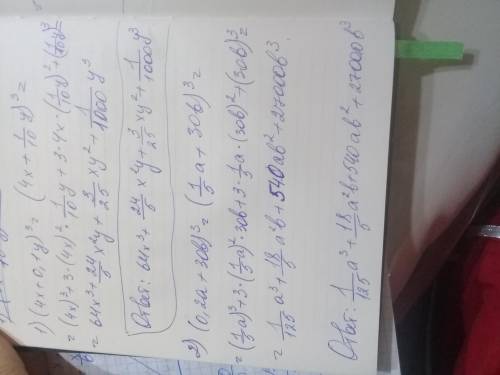 1) (4x+0,1y)³ = (4x + 1/10 y)³ =
= (4x)³ + 3·(4x)²· 1/10 y + 3·4x·(1/10 y)² + (1/10 y)³
= 64x³ + 24/5 x²y + 3/25 xy² + 1/1000 y³
Ответ: 64x³ + 24/5 x²y + 3/25 xy² + 1/1000 y³
2) (0,2a + 30b)³ = (1/5 a + 30b)³ =
= (1/5 a)³ + 3·(1/5 a)²·30b + 3·1/5 a·(30b)² + (30b)³ =
= 1/125 a³ + 18/5 a²b + 540ab² + 27000b³
Ответ: 1/125 a³ + 18/5 a²b + 540ab² + 27000b³